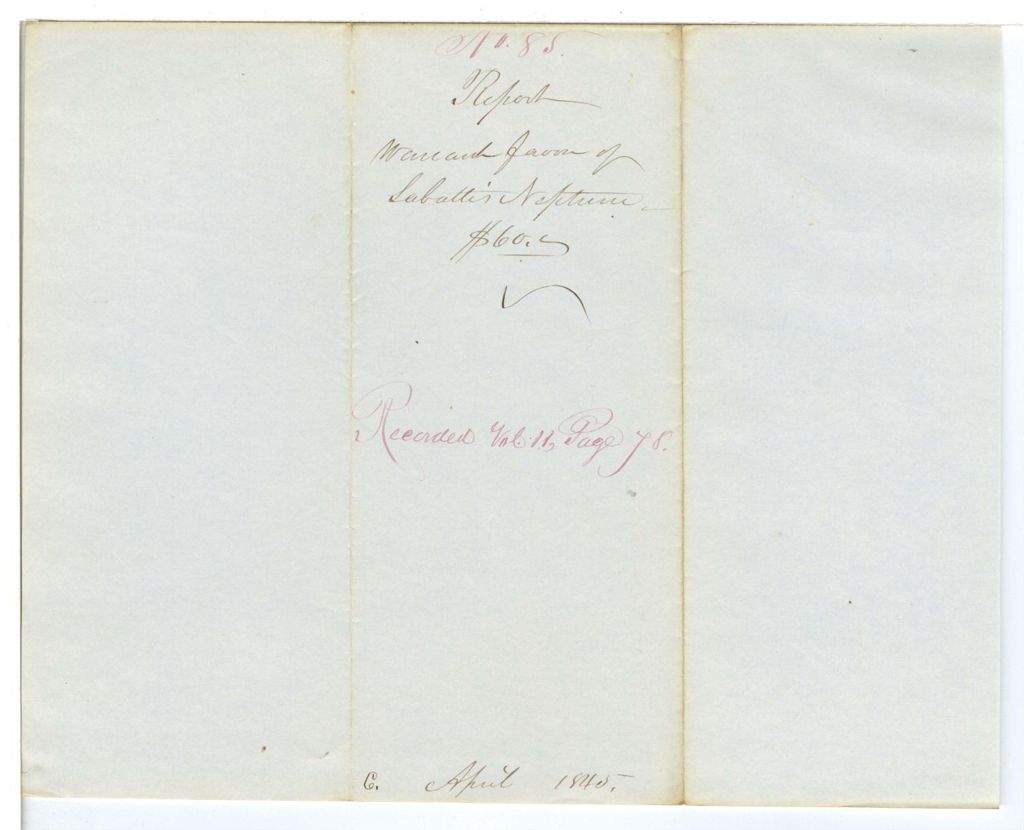 No. 85.
Report
Warrant favor of
Sabattis Neptune
$60.
Recorded Vol. 11, Page 78.
C. April 1845.